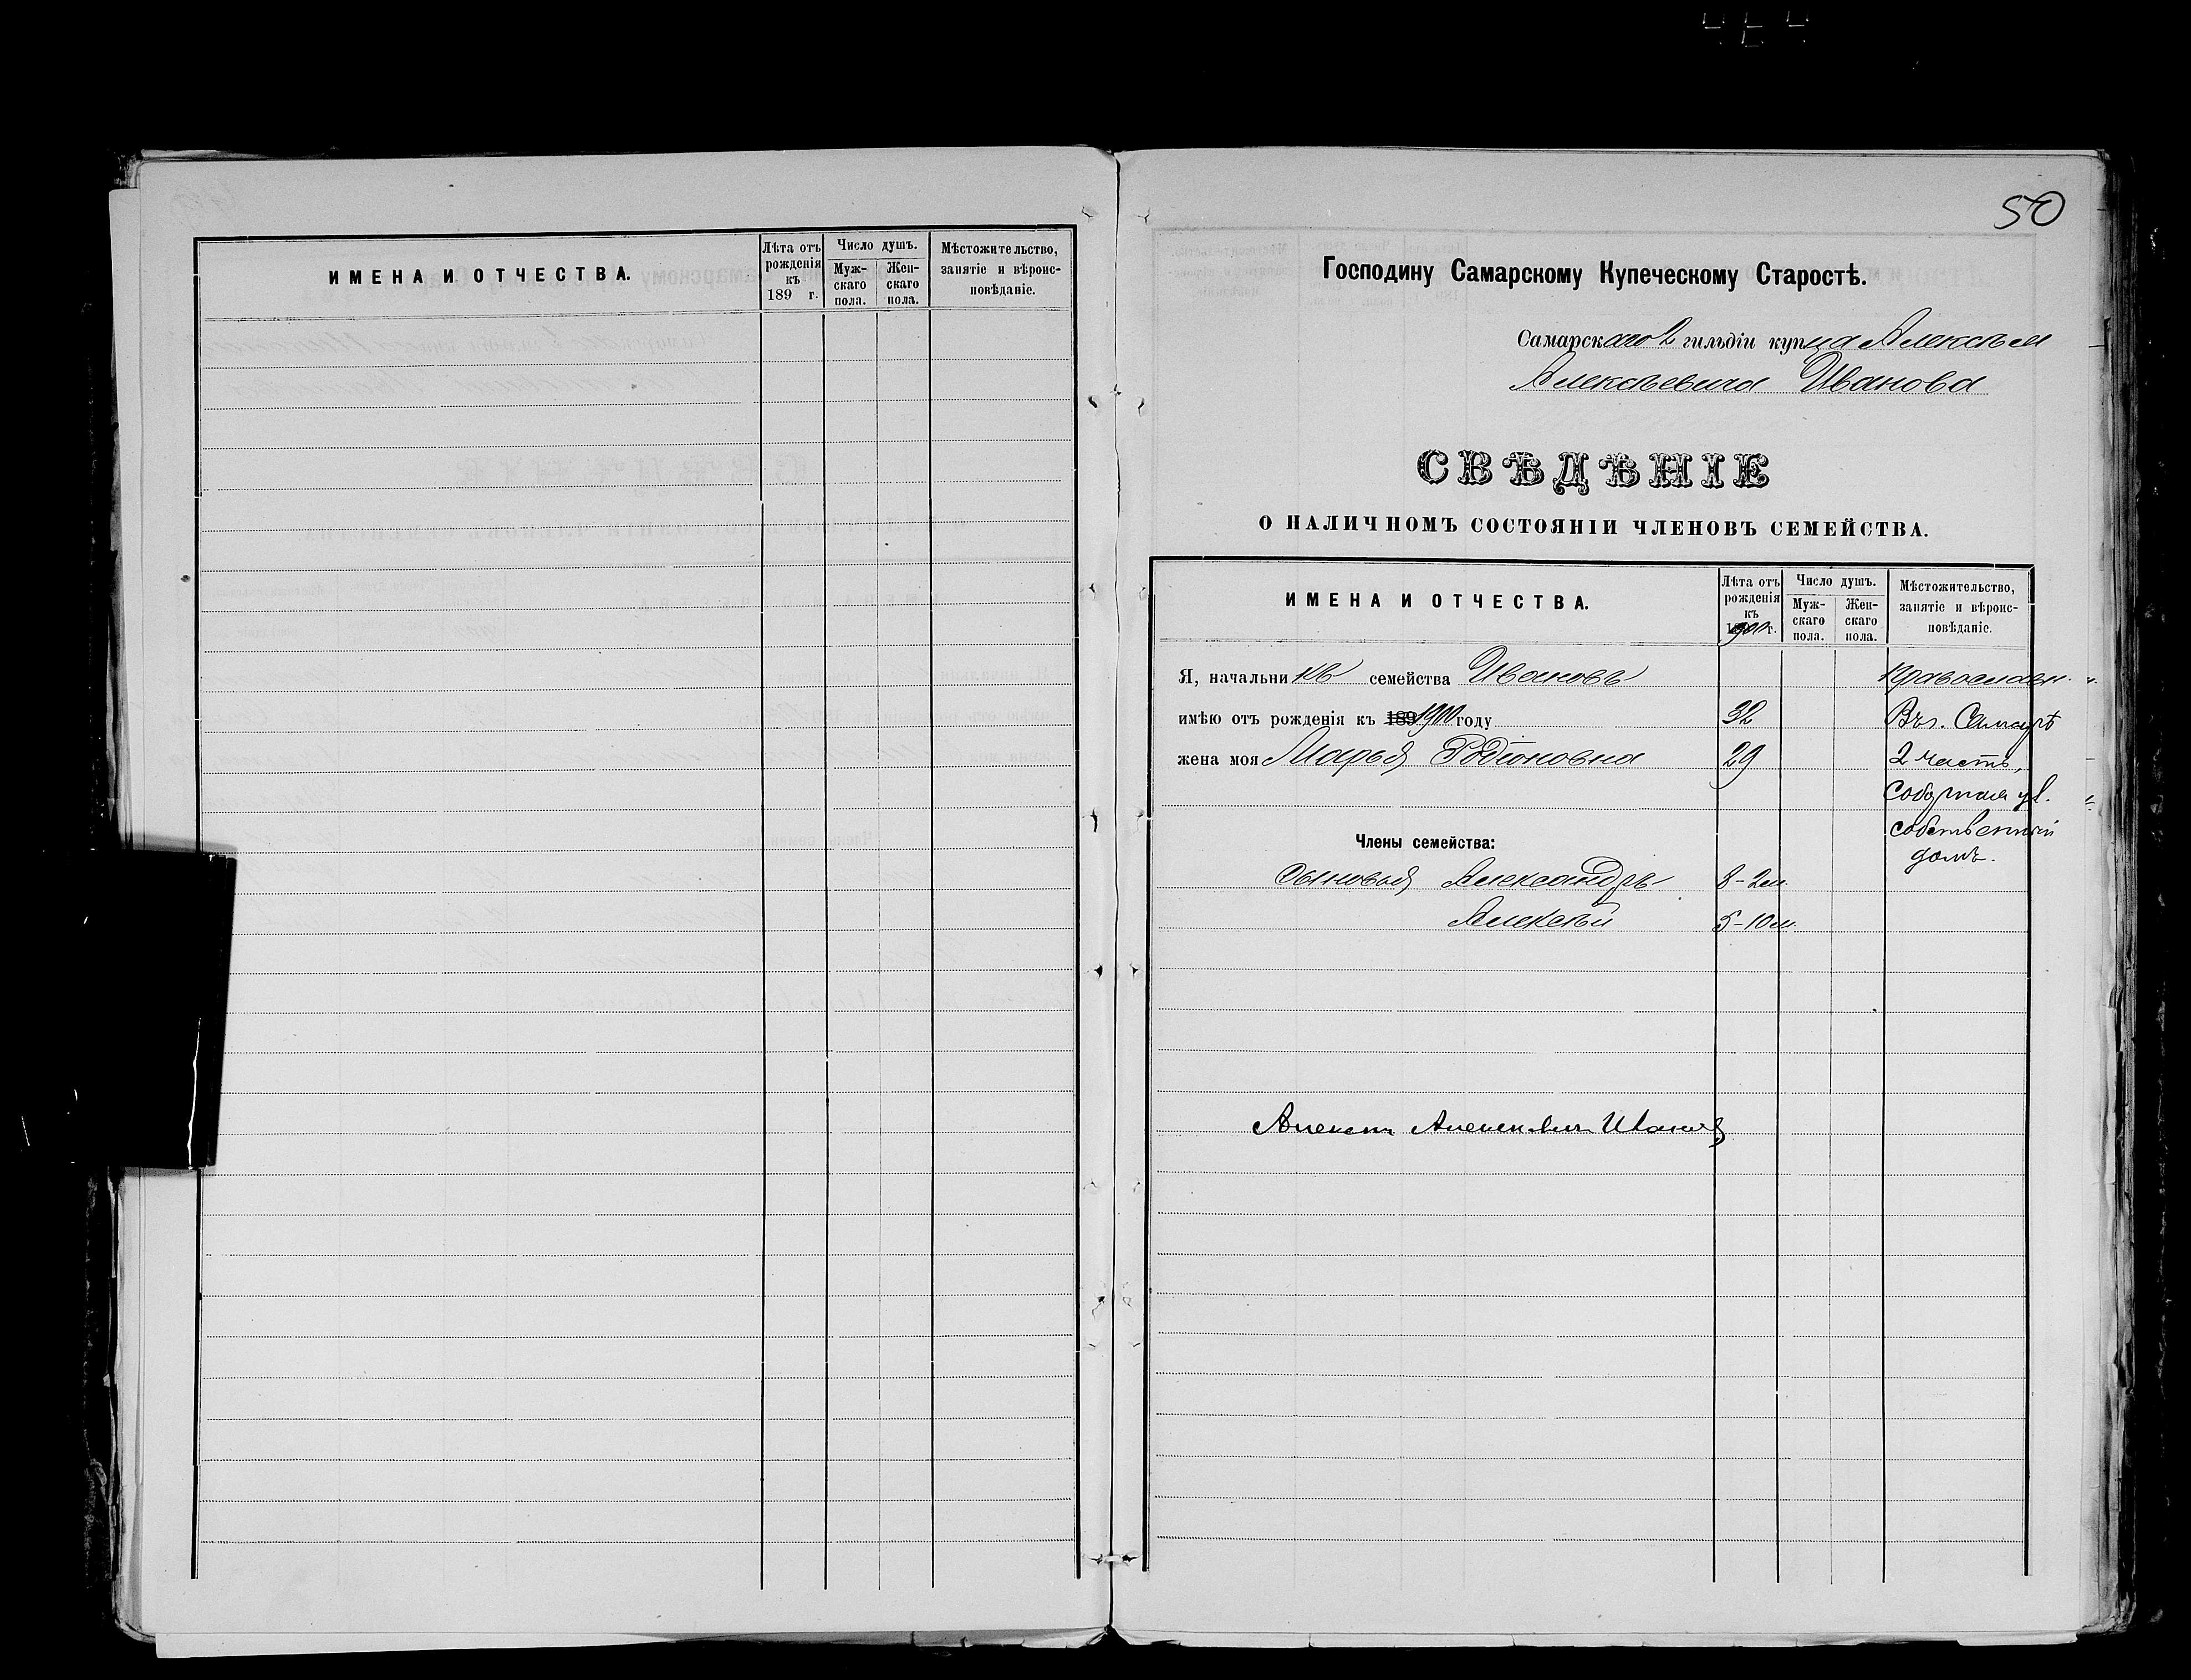 ИМЕНА И ОТЧЕСТВА.
Лѣта отъ рожденія къ 189 г.
Число душъ.
Мужскаго пола.
Женскаго пола.
Мѣстожительство, занятіе и вѣроисповѣданіе.
50
Господину Самарскому Купеческому Старостѣ.
Самарскаго 2 гильдіи купца Алексѣя
Алексѣевича Иванова
СВѢДѢНІЕ
О НАЛИЧНОМЪ СОСТОЯНІИ ЧЛЕНОВЪ СЕМЕЙСТВА.
ИМЕНА И ОТЧЕСТВА.
Лѣта отъ рожденія къ г.
Число душъ.
Мужскаго пола.
Женскаго пола.
Мѣстожительство, занятіе и вѣроисповѣданіе.
Я, начальникъ семейства Ивановъ Православн.
имѣю отъ рожденія къ 189 1900 году 32 Въ г. Самарѣ
жена моя Марья Родіоновна 29 2 часть,
Соборная ул.
собственный
Члены семейства:
домъ.
Сыновья Александръ 8-2м.
Алексѣй 5-10м.
Алексѣй Алексѣевичъ Ивановъ